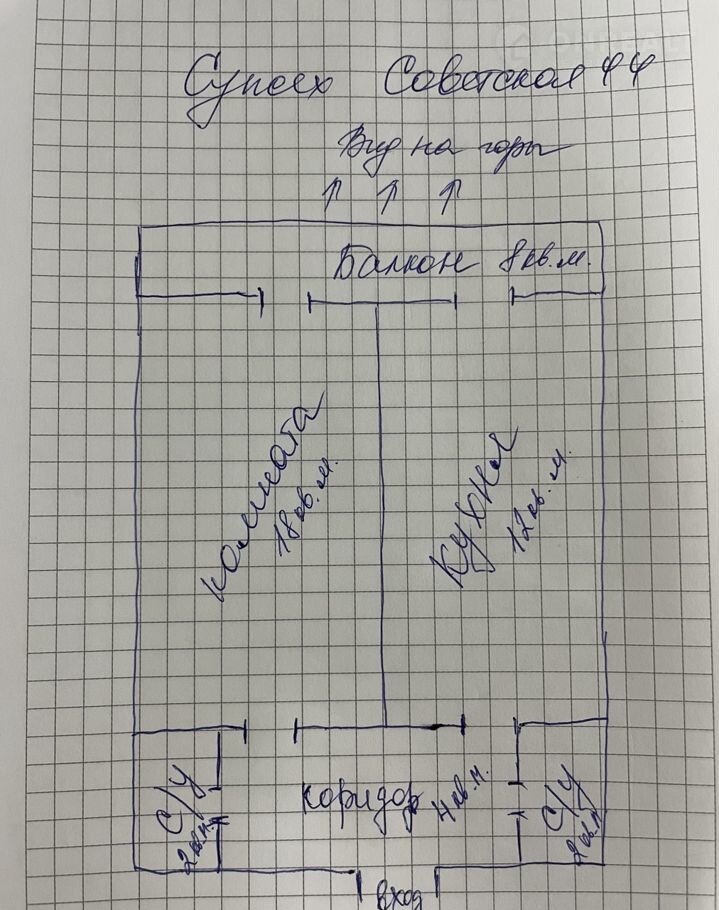 Супсех Советская 44
Вид на горы
Балкон 8 кв.м.
комната
18 кв.м.
Кухня
12 кв.м.
С/У
2 кв.м.
коридор 4 кв.м.
С/У
2 кв.м
вход